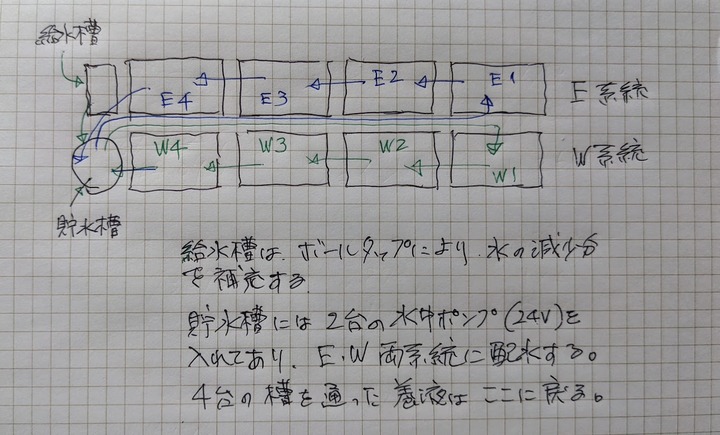 給水槽
E4 E3 E2 E1 E系統
W4 W3 W2 W1 W系統
貯水槽
給水槽は、ボールタップにより、水の減少分
を補充する
貯水槽には2台の水中ポンプ(24V)を
入れてあり、E・W両系統に配水する。
4台の槽を通った養液はここに戻る。